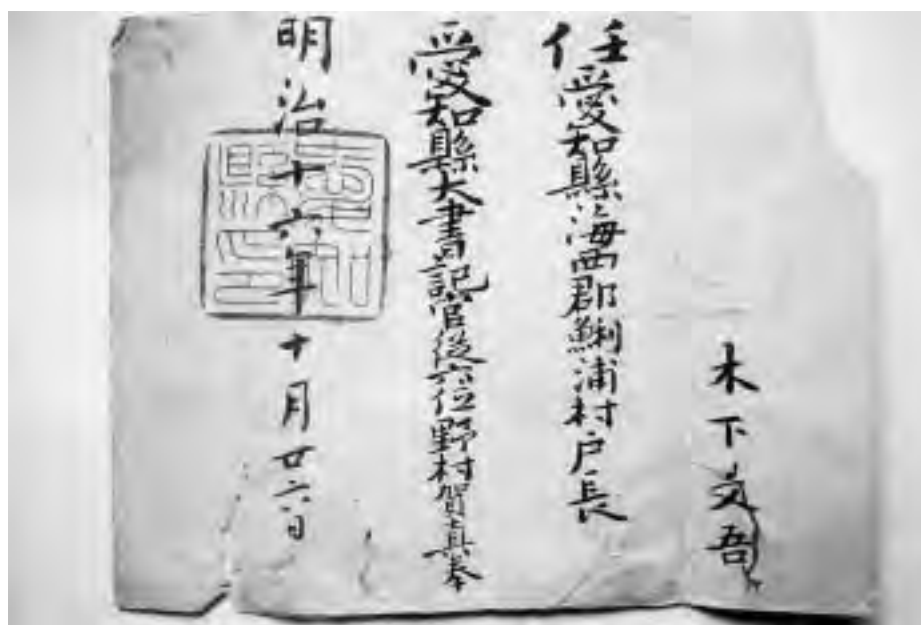 木下文吾
任愛知縣海西郡鯏浦村戸長
愛知縣大書記官從六位野村賀真奉
明治十六年十月廿六日